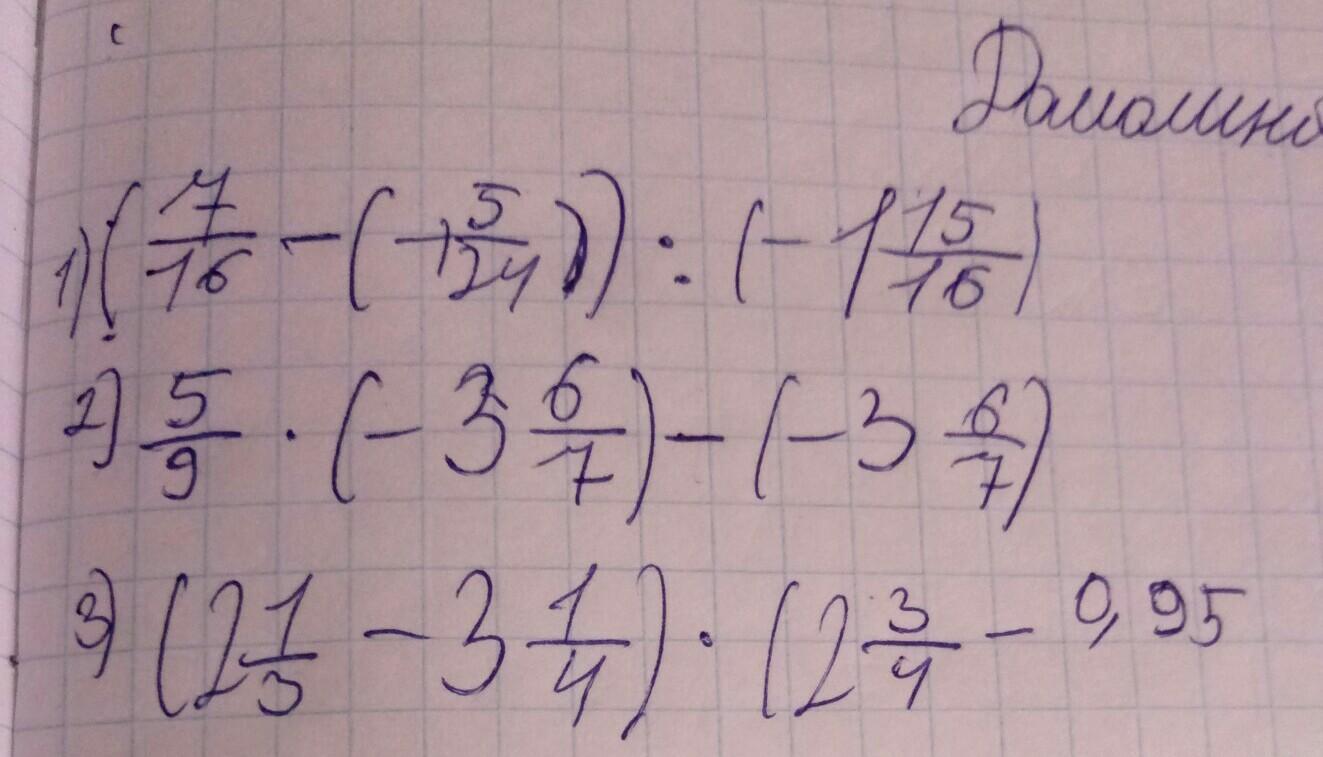 Домашно
1) (7/16 - (-1 5/24)) : (-1 15/16)
2) 5/9 · (-3 6/7) - (-3 6/7)
3) (2 1/3 - 3 1/4) · (2 3/4 - 0,95